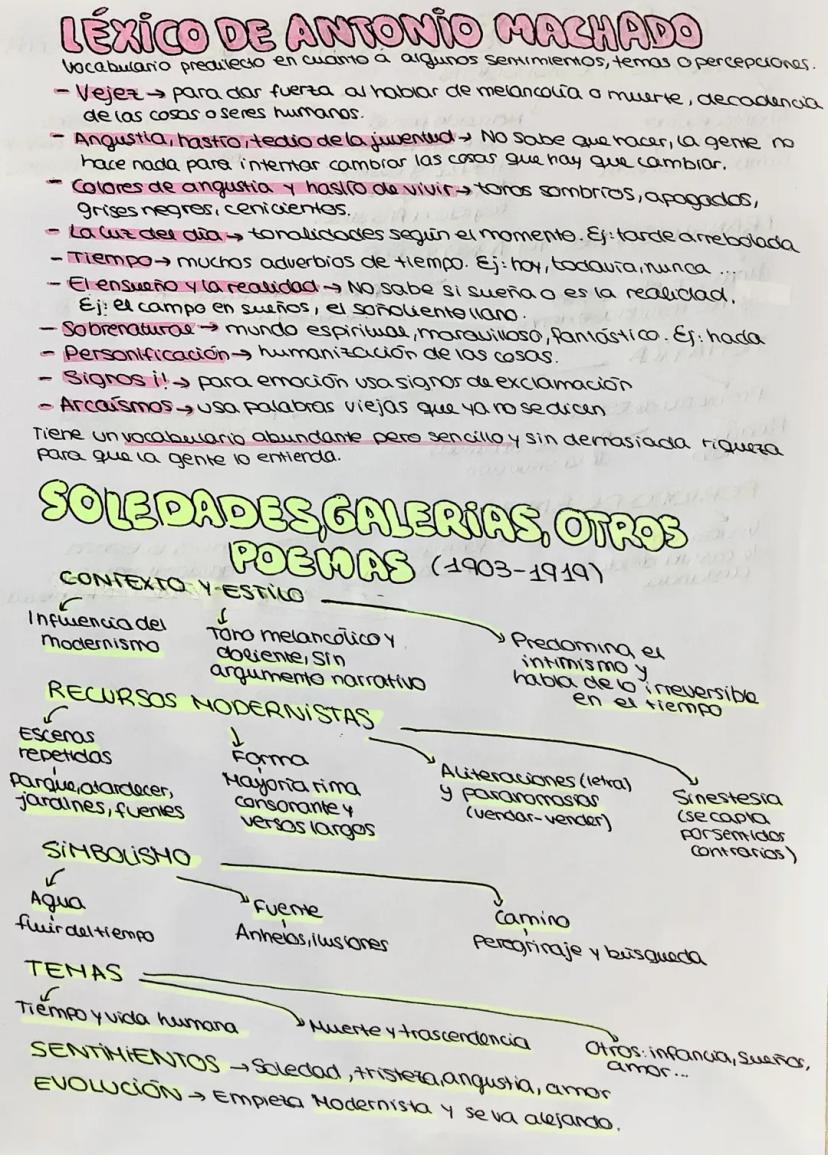 LÉXICO DE ANTONIO MACHADO
Vocabulario predilecto en cuanto a algunos sentimientos, temas o percepciones.
- Vejez → para dar fuerza al hablar de melancolía o muerte, decadencia
de las cosas o seres humanos.
- Angustia, hastío, tedio de la juventud → No sabe que hacer, la gente no
hace nada para intentar cambiar las cosas que hay que cambiar.
- Colores de angustia y hastío de vivir → tonos sombríos, apagados,
grises negros, cenicientos.
- La luz del día → tonalidades según el momento. Ej: tarde arrebolada
- Tiempo → muchos adverbios de tiempo. Ej: hoy, todavía, nunca ...
- El ensueño y la realidad → No sabe si sueña o es la realidad.
Ej: el campo en sueños, el soñoliento llano.
- Sobrenatural → mundo espiritual, maravilloso, fantástico. Ej: hada
- Personificación → humanización de las cosas.
- Signos ¡! → para emoción usa signos de exclamación
- Arcaísmos → usa palabras viejas que ya no se dicen
Tiene un vocabulario abundante pero sencillo y sin demasiada riqueza
para que la gente lo entienda.
SOLEDADES, GALERÍAS, OTROS
POEMAS (1903-1919)
CONTEXTO Y ESTILO
Influencia del
modernismo
Tono melancólico y
doliente, sin
argumento narrativo
Predomina el
intimismo y
habla de lo irreversible
en el tiempo
RECURSOS MODERNISTAS
Escenas
repetidas
Parque, atardecer,
jardines, fuentes
Forma
Mayoría rima
consonante y
versos largos
Aliteraciones (letra)
y paranomasias
(vendar-vender)
Sinestesia
(se capta
por sentidos
contrarios)
SIMBOLISMO
Agua
fluir del tiempo
Fuente
Anhelos, ilusiones
Camino
Peregrinaje y búsqueda
TEMAS
Tiempo y vida humana
Muerte y trascendencia
Otros: infancia, sueños,
amor...
SENTIMIENTOS → Soledad, tristeza, angustia, amor
EVOLUCIÓN → Empieza Modernista y se va alejando.